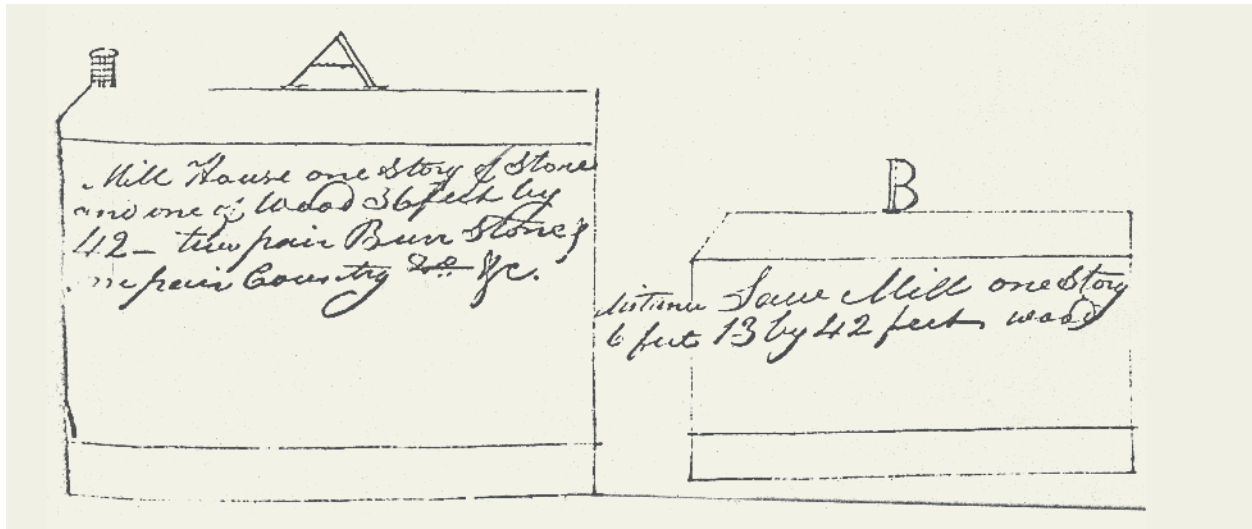 A
Mill House one Story of Stone
and one of Wood 36 feet by
42 – two pair Burr Stones
one pair Country Do &c.
B
distance
6 feet
Saw Mill one Story
13 by 42 feet wood